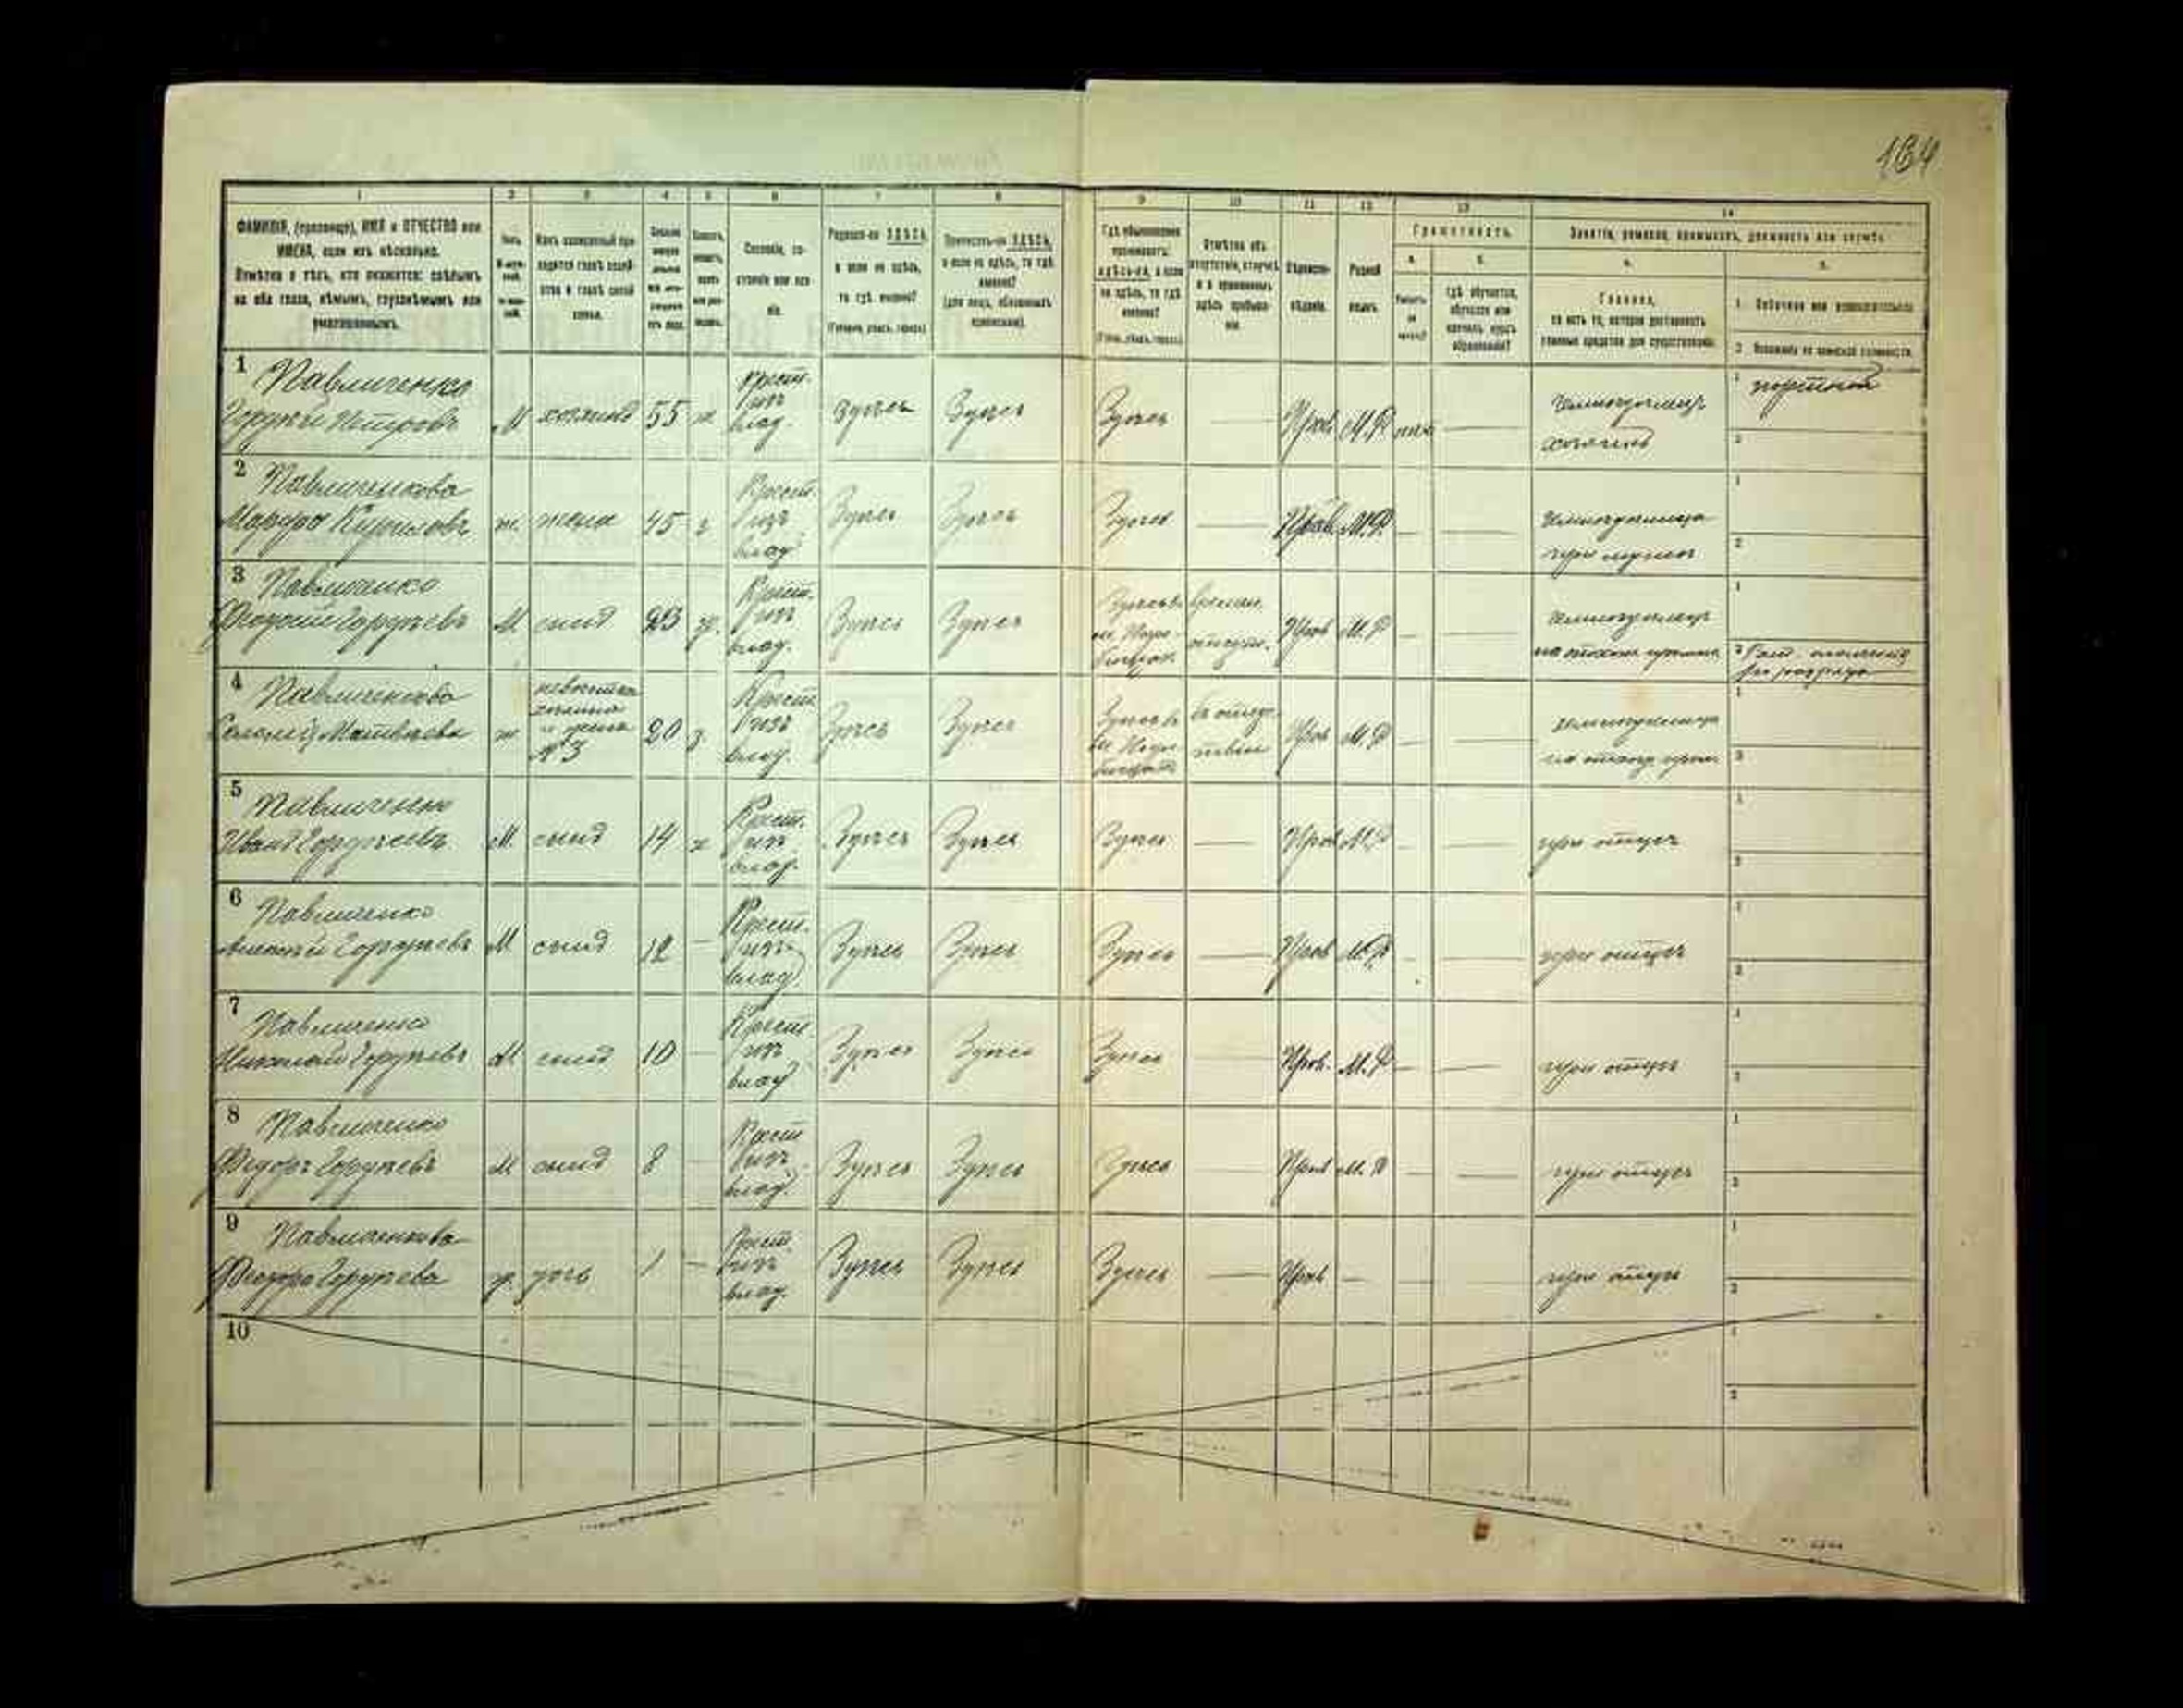 164
1 2 3 4 5 6 7 8 9 10 11 12 13 14
ФАМИЛІЯ, (прозвище), ИМЯ и ОТЧЕСТВО или
ИМЕНА, если ихъ нѣсколько.
Отмѣтка о тѣхъ, кто окажется: слѣпымъ
на оба глаза, нѣмымъ, глухонѣмымъ или
умалишеннымъ.
Какъ записанный при-
ходится главѣ хозяй-
ства и главѣ своей
семьи.
Сословіе, со-
стояніе или зва-
ніе.
Родился-ли ЗДѢСЬ,
а если не здѣсь,
то гдѣ именно?
(Губернія, уѣздъ, городъ)
Приписанъ-ли ЗДѢСЬ,
а если не здѣсь, то гдѣ
именно?
(для лицъ, обязанныхъ
припискою).
Гдѣ обыкновенно
проживаетъ:
здѣсь-ли, а если
не здѣсь, то гдѣ
именно?
(Губ., уѣздъ, городъ)
Отмѣтка объ
отсутствіи, отлучкѣ
и о временномъ
здѣсь пребыва-
ніи.
Вѣроиспо-
вѣданіе.
Родной
языкъ.
Грамотность.
а. б.
Умѣетъ
ли
читать?
Гдѣ обучается,
обучался или
кончилъ курсъ
образованія?
Занятіе, ремесло, промыселъ, должность или служба.
а. б.
Главное,
то есть то, которое доставляетъ
главныя средства для существованія.
1 Побочное или вспомогательное.
2 Положеніе по воинской повинности.
1 Павличенко
Гордѣй Петровъ М хозяинъ 55 ж Крест. изъ влад. Здѣсь Здѣсь Здѣсь — Прав. М.Р нѣтъ — земледѣлецъ хозяинъ портной
2 Павличенкова
Марфа Кирилова ж жена 45 з Крест. изъ влад. Здѣсь Здѣсь Здѣсь — Прав. М.Р. — — земледѣлица при мужѣ
3 Павличенко
Феодосій Гордѣевъ М. сынъ 23 Крест. изъ влад. Здѣсь Здѣсь времен. отсутс. Прав М.Р — — земледѣлецъ
4 Павличенкова
Матвѣева ж невѣстка хозяина и жена №3 20 з. Крест изъ влад. Здѣсь Здѣсь въ отсут ствіи Прав М.Р — — земледѣлица
5 Павличенко
Иванъ Гордѣевъ М. сынъ 14 х Крест. изъ влад. Здѣсь Здѣсь Здѣсь — Прав М.Р — — при отцѣ
6 Павличенко
Алексѣй Гордѣевъ М сынъ 12 — Крест. изъ влад. Здѣсь Здѣсь Здѣсь — Прав М.Р — — при отцѣ
7 Павличенко
Николай Гордѣевъ М сынъ 10 — Крест. изъ влад Здѣсь Здѣсь Здѣсь — Прав. М.Р — — при отцѣ
8 Павличенко
Федоръ Гордѣевъ М сынъ 8 — Крест изъ влад. Здѣсь Здѣсь Здѣсь — Прав М.Р — — при отцѣ
9 Павличенкова
Феодора Гордѣева ж. дочь 1 — Крест. изъ влад. Здѣсь Здѣсь Здѣсь — Прав — — — при отцѣ
10